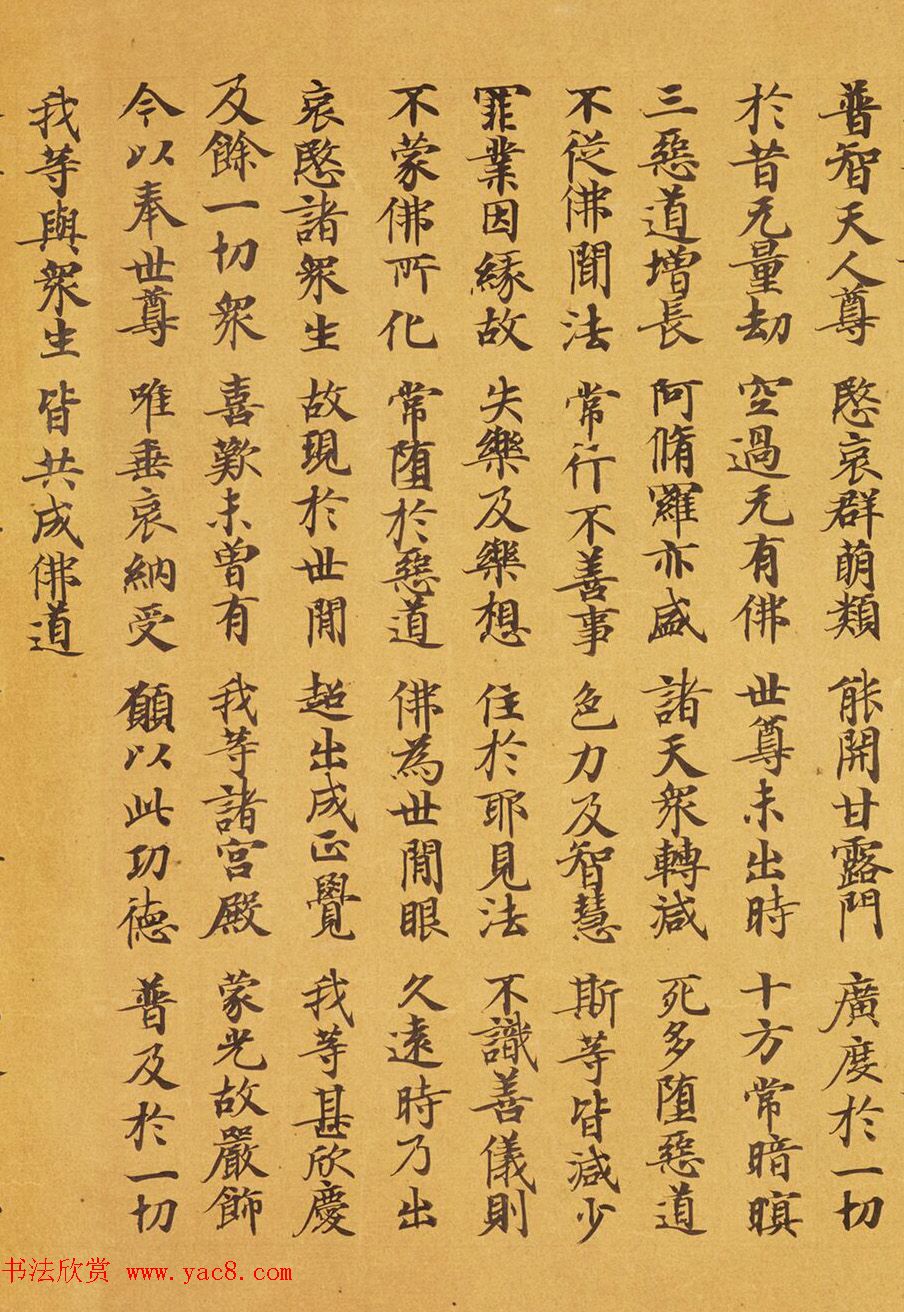 普智天人尊 愍哀群萌類 能開甘露門 廣度於一切
於昔无量劫 空過无有佛 世尊未出時 十方常暗暝
三惡道增長 阿脩羅亦盛 諸天衆轉減 死多墮惡道
不從佛聞法 常行不善事 色力及智慧 斯等皆減少
罪業因緣故 失樂及樂想 住於耶見法 不識善儀則
不蒙佛所化 常墮於惡道 佛為世間眼 久遠時乃出
哀愍諸衆生 故現於世間 超出成正覺 我等甚欣慶
及餘一切衆 喜歎未曾有 我等諸宮殿 蒙光故嚴飾
今以奉世尊 唯垂哀納受 願以此功德 普及於一切
我等與衆生 皆共成佛道
书法欣赏 www.yac8.com